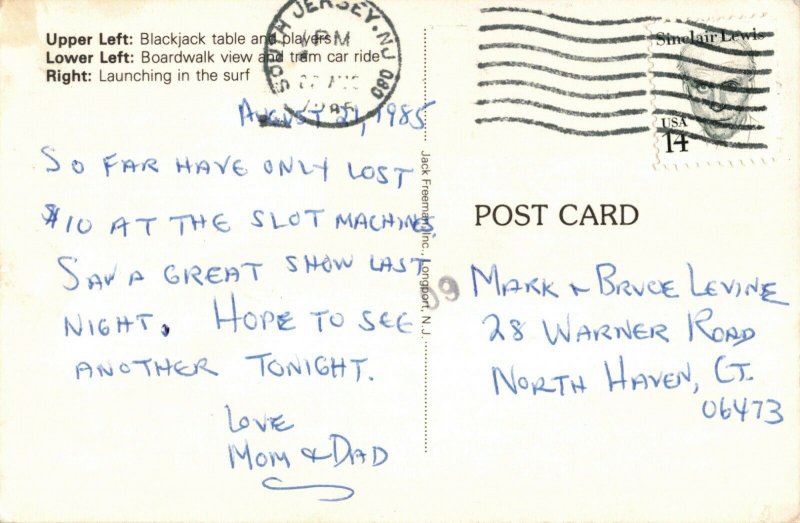 Upper Left: Blackjack table and players
Lower Left: Boardwalk view and tram car ride
Right: Launching in the surf
SOUTH JERSEY, NJ 080
PM
Sinclair Lewis
USA
14
AUGUST 21, 1985
SO FAR HAVE ONLY LOST
$10 AT THE SLOT MACHINES.
SAW A GREAT SHOW LAST
NIGHT. HOPE TO SEE
ANOTHER TONIGHT.
LOVE
MOM & DAD
Jack Freeman, Inc., Longport, N.J.
POST CARD
09
MARK & BRUCE LEVINE
28 WARNER ROAD
NORTH HAVEN, CT.
06473